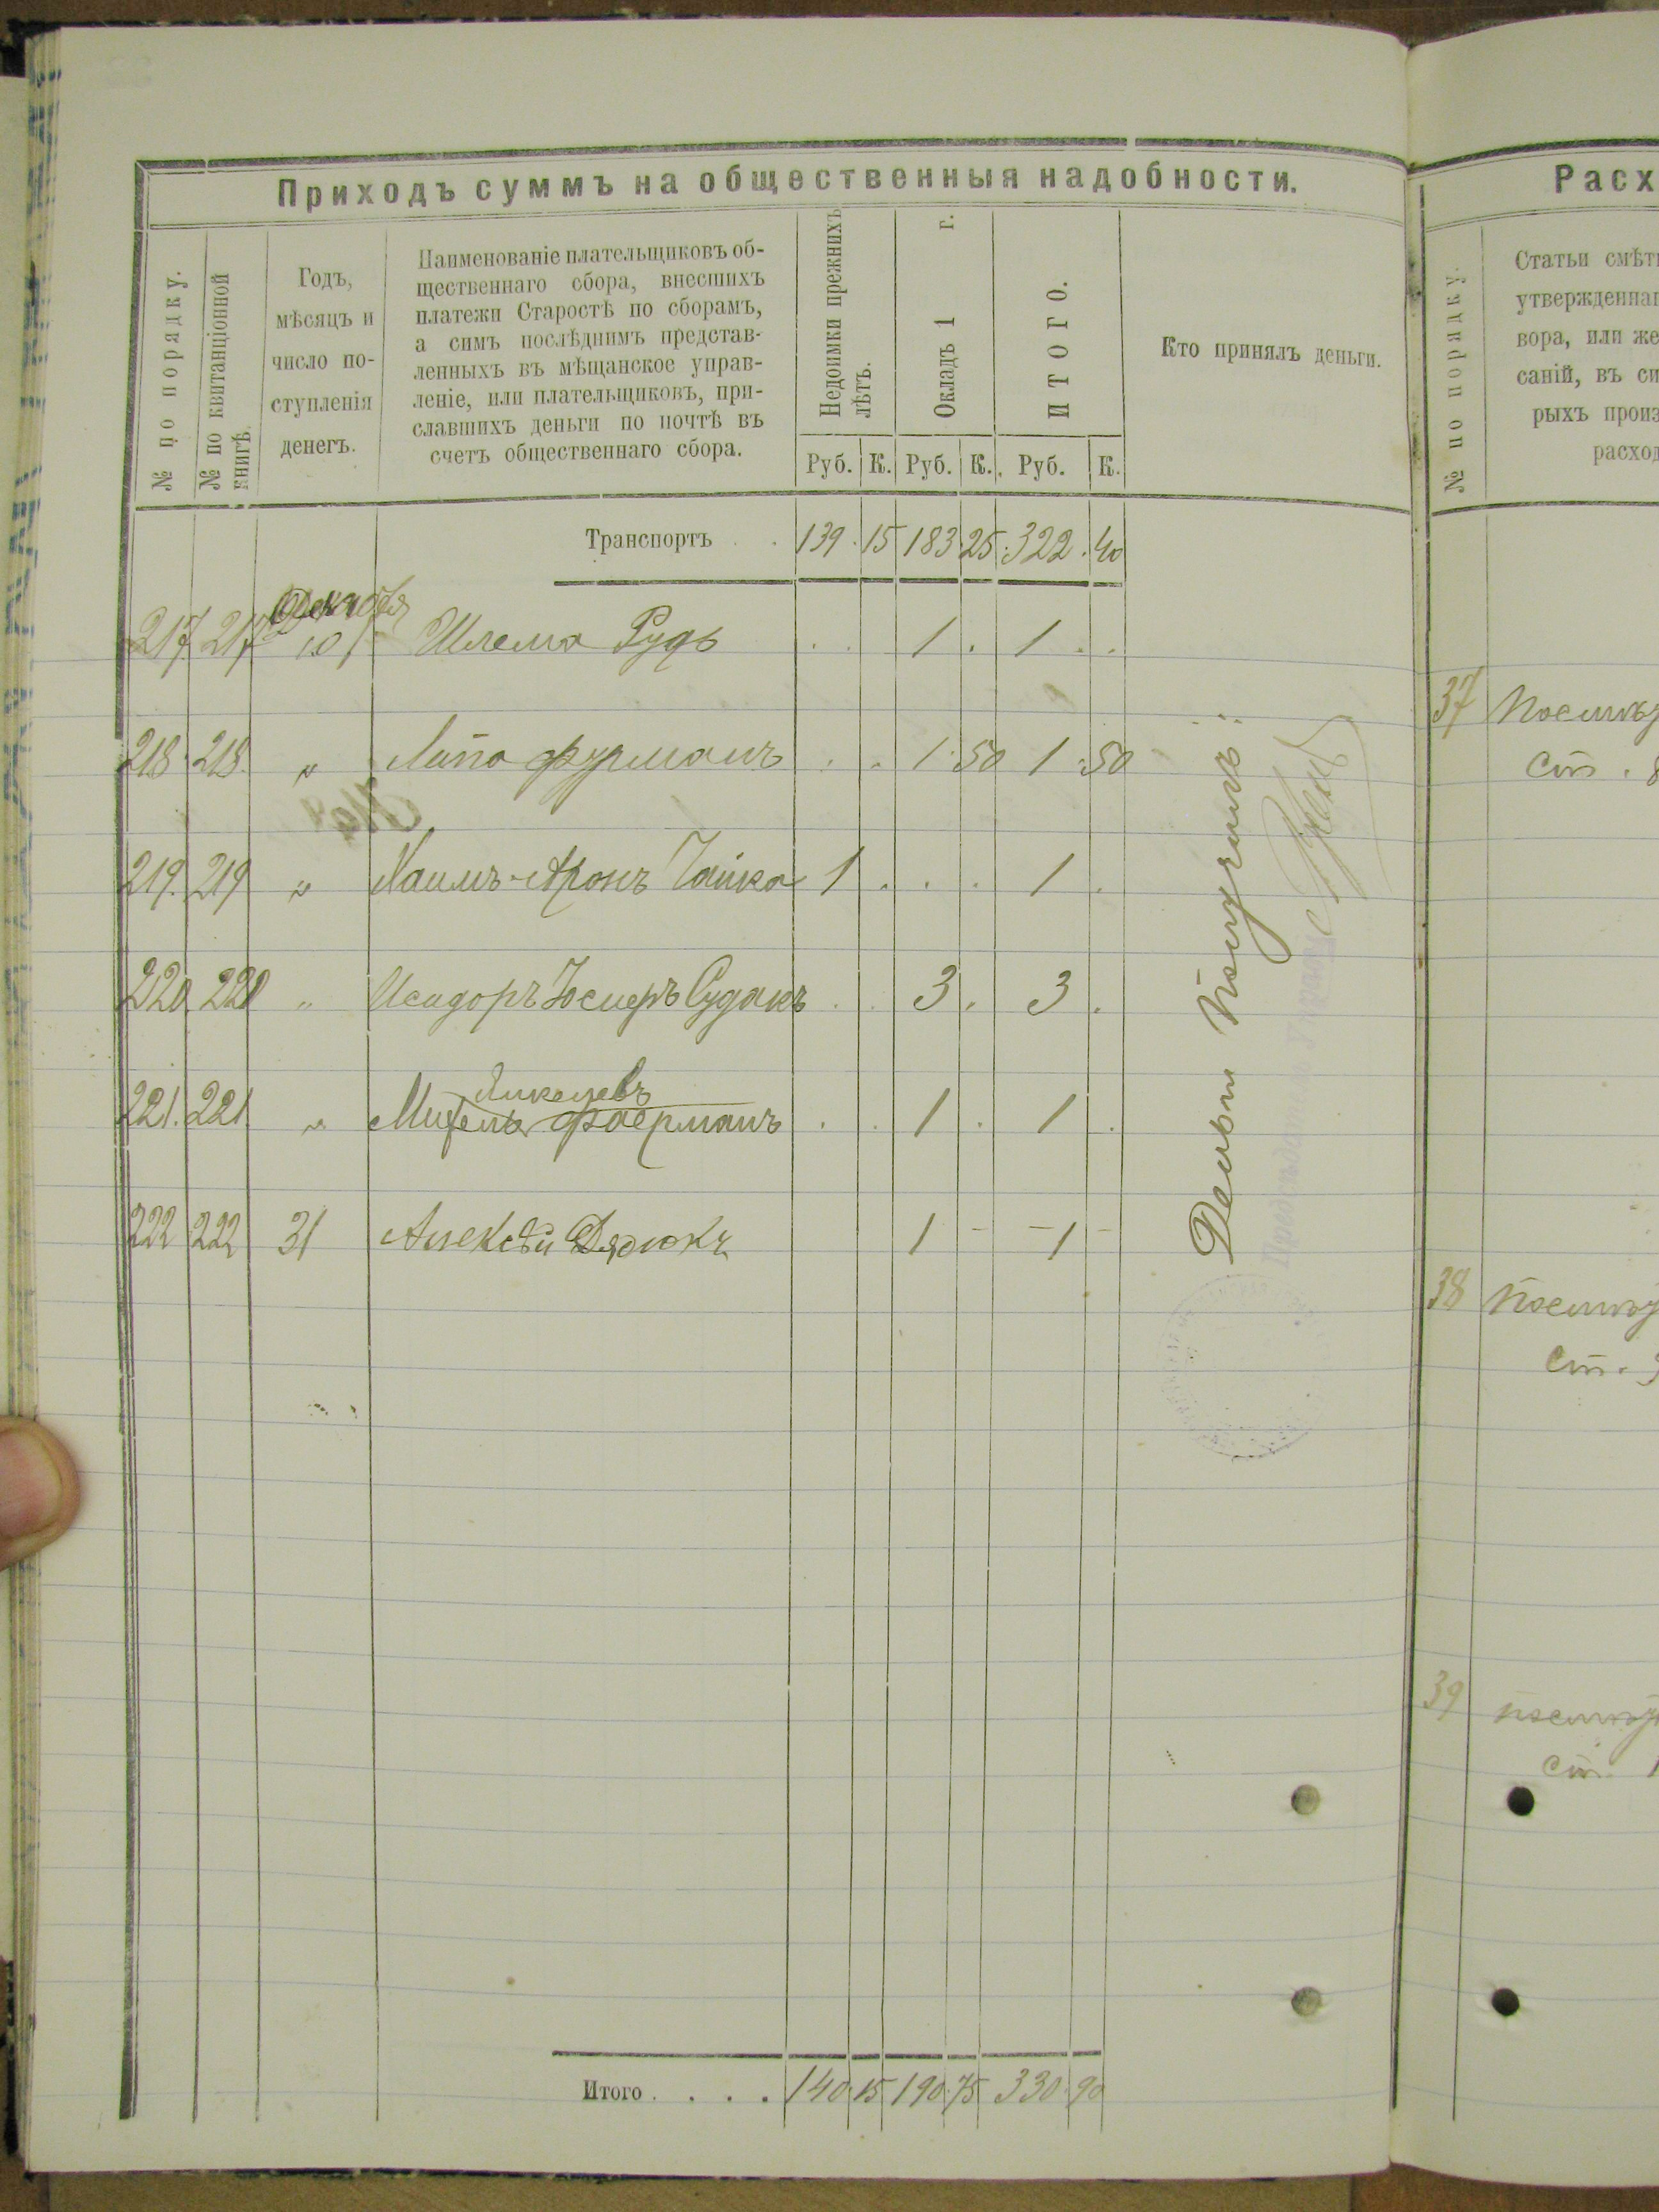 Приходъ суммъ на общественныя надобности.
№ по порядку.
№ по квитанціонной
книгѣ.
Годъ,
мѣсяцъ и
число по-
ступленія
денегъ.
Наименованіе плательщиковъ об-
щественнаго сбора, внесшихъ
платежи Старостѣ по сборамъ,
а симъ послѣднимъ представ-
ленныхъ въ мѣщанское управ-
леніе, или плательщиковъ, при-
славшихъ деньги по почтѣ въ
счетъ общественнаго сбора.
Недоимки прежнихъ
лѣтъ.
Окладъ 1 г.
ИТОГО.
Руб. К. Руб. К. Руб. К.
Кто принялъ деньги.
Транспортъ . . 139 . 15 183 . 25 . 322 . 40
Октября
217. 217 10 Шлема Рудь . . 1 . 1 . .
218. 218. " Липа Фурманъ . . 1 . 50 1 . 50
219. 219 " Хаимъ-Аронъ Чайка 1 . . . 1 .
220. 220 " Исидоръ Судакъ . . 3 . 3 .
Янкелевъ
221. 221 " Фаерманъ . . 1 . 1 .
222 222 31 Алексѣй 1 - - 1 -
Деньги получилъ:
Итого . . . . 140 . 15 190 . 75 330 . 90
Расх
№ по порядку.
Статьи смѣт
утвержденна
вора, или же
саній, въ си
рыхъ произ
расход
37
ст. 8
38
Ст.
39
ст. 1